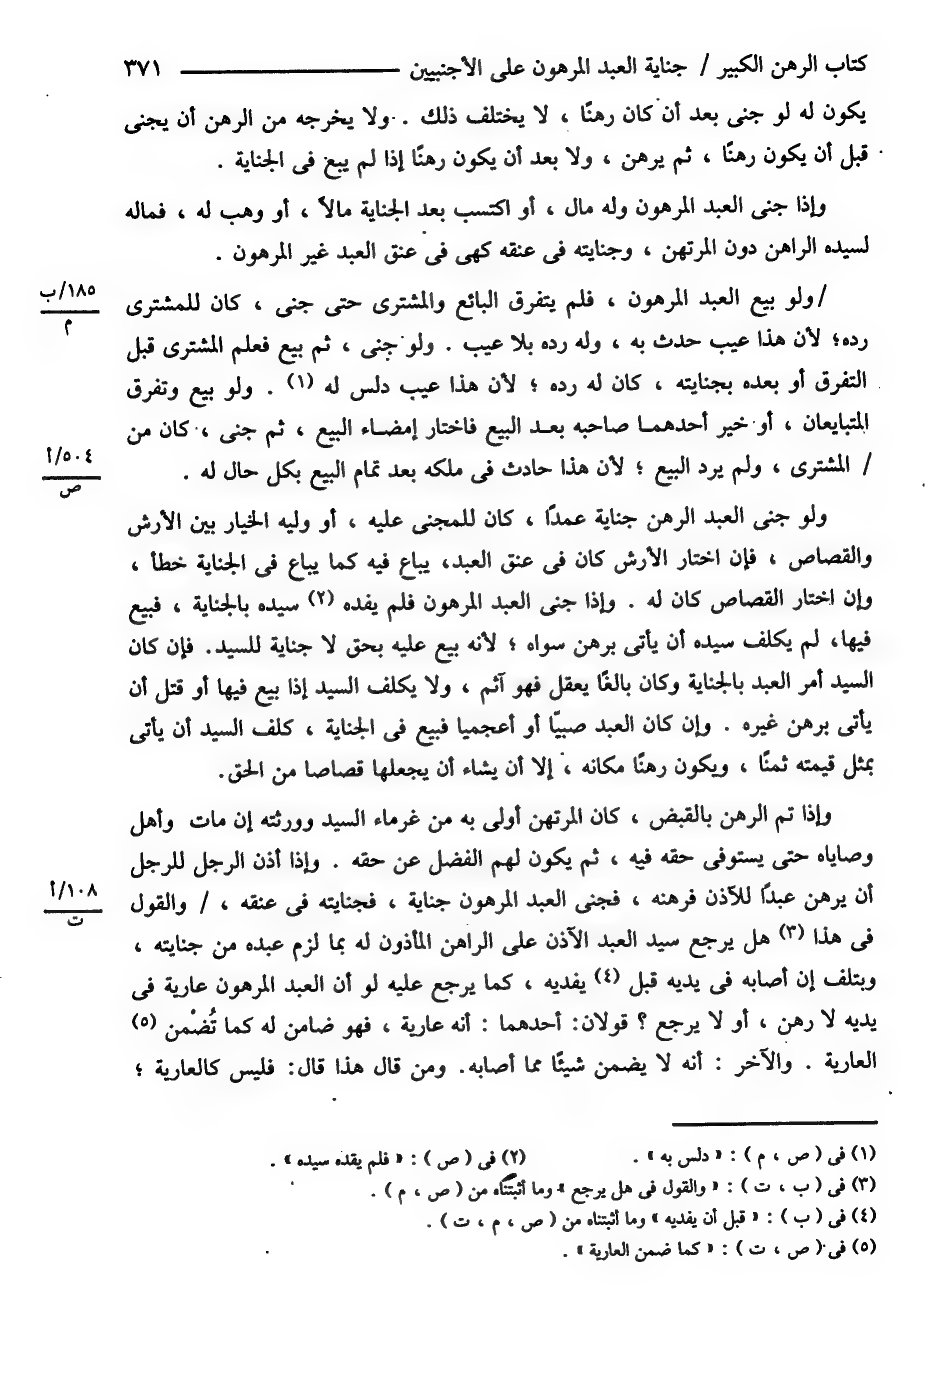 كتاب الرهن الكبير / جناية العبد المرهون على الأجنبيين ــــــــــ ٣٧١
يكون له لو جنى بعد أن كان رهنًا ، لا يختلف ذلك . ولا يخرجه من الرهن أن يجنى
قبل أن يكون رهنًا ، ثم يرهن ، ولا بعد أن يكون رهنًا إذا لم يبع فى الجناية .
وإذا جنى العبد المرهون وله مال ، أو اكتسب بعد الجناية مالاً ، أو وهب له ، فماله
لسيده الراهن دون المرتهن ، وجنايته فى عنقه كهى فى عنق العبد غير المرهون .
١٨٥/ب
م
/ولو بيع العبد المرهون ، فلم يتفرق البائع والمشترى حتى جنى ، كان للمشترى
رده؛ لأن هذا عيب حدث به ، وله رده بلا عيب . ولو جنى ، ثم بيع فعلم المشترى قبل
التفرق أو بعده بجنايته ، كان له رده ؛ لأن هذا عيب دلس له (١) . ولو بيع وتفرق
المتبايعان ، أو خير أحدهما صاحبه بعد البيع فاختار إمضاء البيع ، ثم جنى ، كان من
٥٠٤/أ
ص
/ المشترى ، ولم يرد البيع ؛ لأن هذا حادث فى ملكه بعد تمام البيع بكل حال له .
ولو جنى العبد الرهن جناية عمدًا ، كان للمجنى عليه ، أو وليه الخيار بين الأرش
والقصاص ، فإن اختار الأرش كان فى عنق العبد، يباع فيه كما يباع فى الجناية خطأ ،
وإن اختار القصاص كان له . وإذا جنى العبد المرهون فلم يفده (٢) سيده بالجناية ، فبيع
فيها، لم يكلف سيده أن يأتى برهن سواه ؛ لأنه بيع عليه بحق لا جناية للسيد. فإن كان
السيد أمر العبد بالجناية وكان بالغًا يعقل فهو آثم ، ولا يكلف السيد إذا بيع فيها أو قتل أن
يأتى برهن غيره . وإن كان العبد صبيًا أو أعجميا فبيع فى الجناية ، كلف السيد أن يأتى
بمثل قيمته ثمنًا ، ويكون رهنًا مكانه ، إلا أن يشاء أن يجعلها قصاصا من الحق.
وإذا تم الرهن بالقبض ، كان المرتهن أولى به من غرماء السيد وورثته إن مات وأهل
وصاياه حتى يستوفى حقه فيه ، ثم يكون لهم الفضل عن حقه . وإذا أذن الرجل للرجل
١٠٨/أ
ت
أن يرهن عبدًا للآذن فرهنه ، فجنى العبد المرهون جناية ، فجنايته فى عنقه ، / والقول
فى هذا (٣) هل يرجع سيد العبد الآذن على الراهن المأذون له بما لزم عبده من جنايته ،
وبتلف إن أصابه فى يديه قبل (٤) يفديه ، كما يرجع عليه لو أن العبد المرهون عارية فى
يديه لا رهن ، أو لا يرجع ؟ قولان: أحدهما : أنه عارية ، فهو ضامن له كما تُضْمن (٥)
العارية . والآخر : أنه لا يضمن شيئًا مما أصابه. ومن قال هذا قال: فليس كالعارية ؛
(١) فى ( ص ، م ) : « دلس به » . (٢) فى ( ص ) : « فلم يقده سيده » .
(٣) فى ( ب ، ت ) : « والقول فى هل يرجع » وما أثبتناه من ( ص ، م ) .
(٤) فى ( ب ) : « قبل أن يفديه » وما أثبتناه من ( ص ، م ، ت ) .
(٥) فى ( ص ، ت ) : « كما ضمن العارية » .